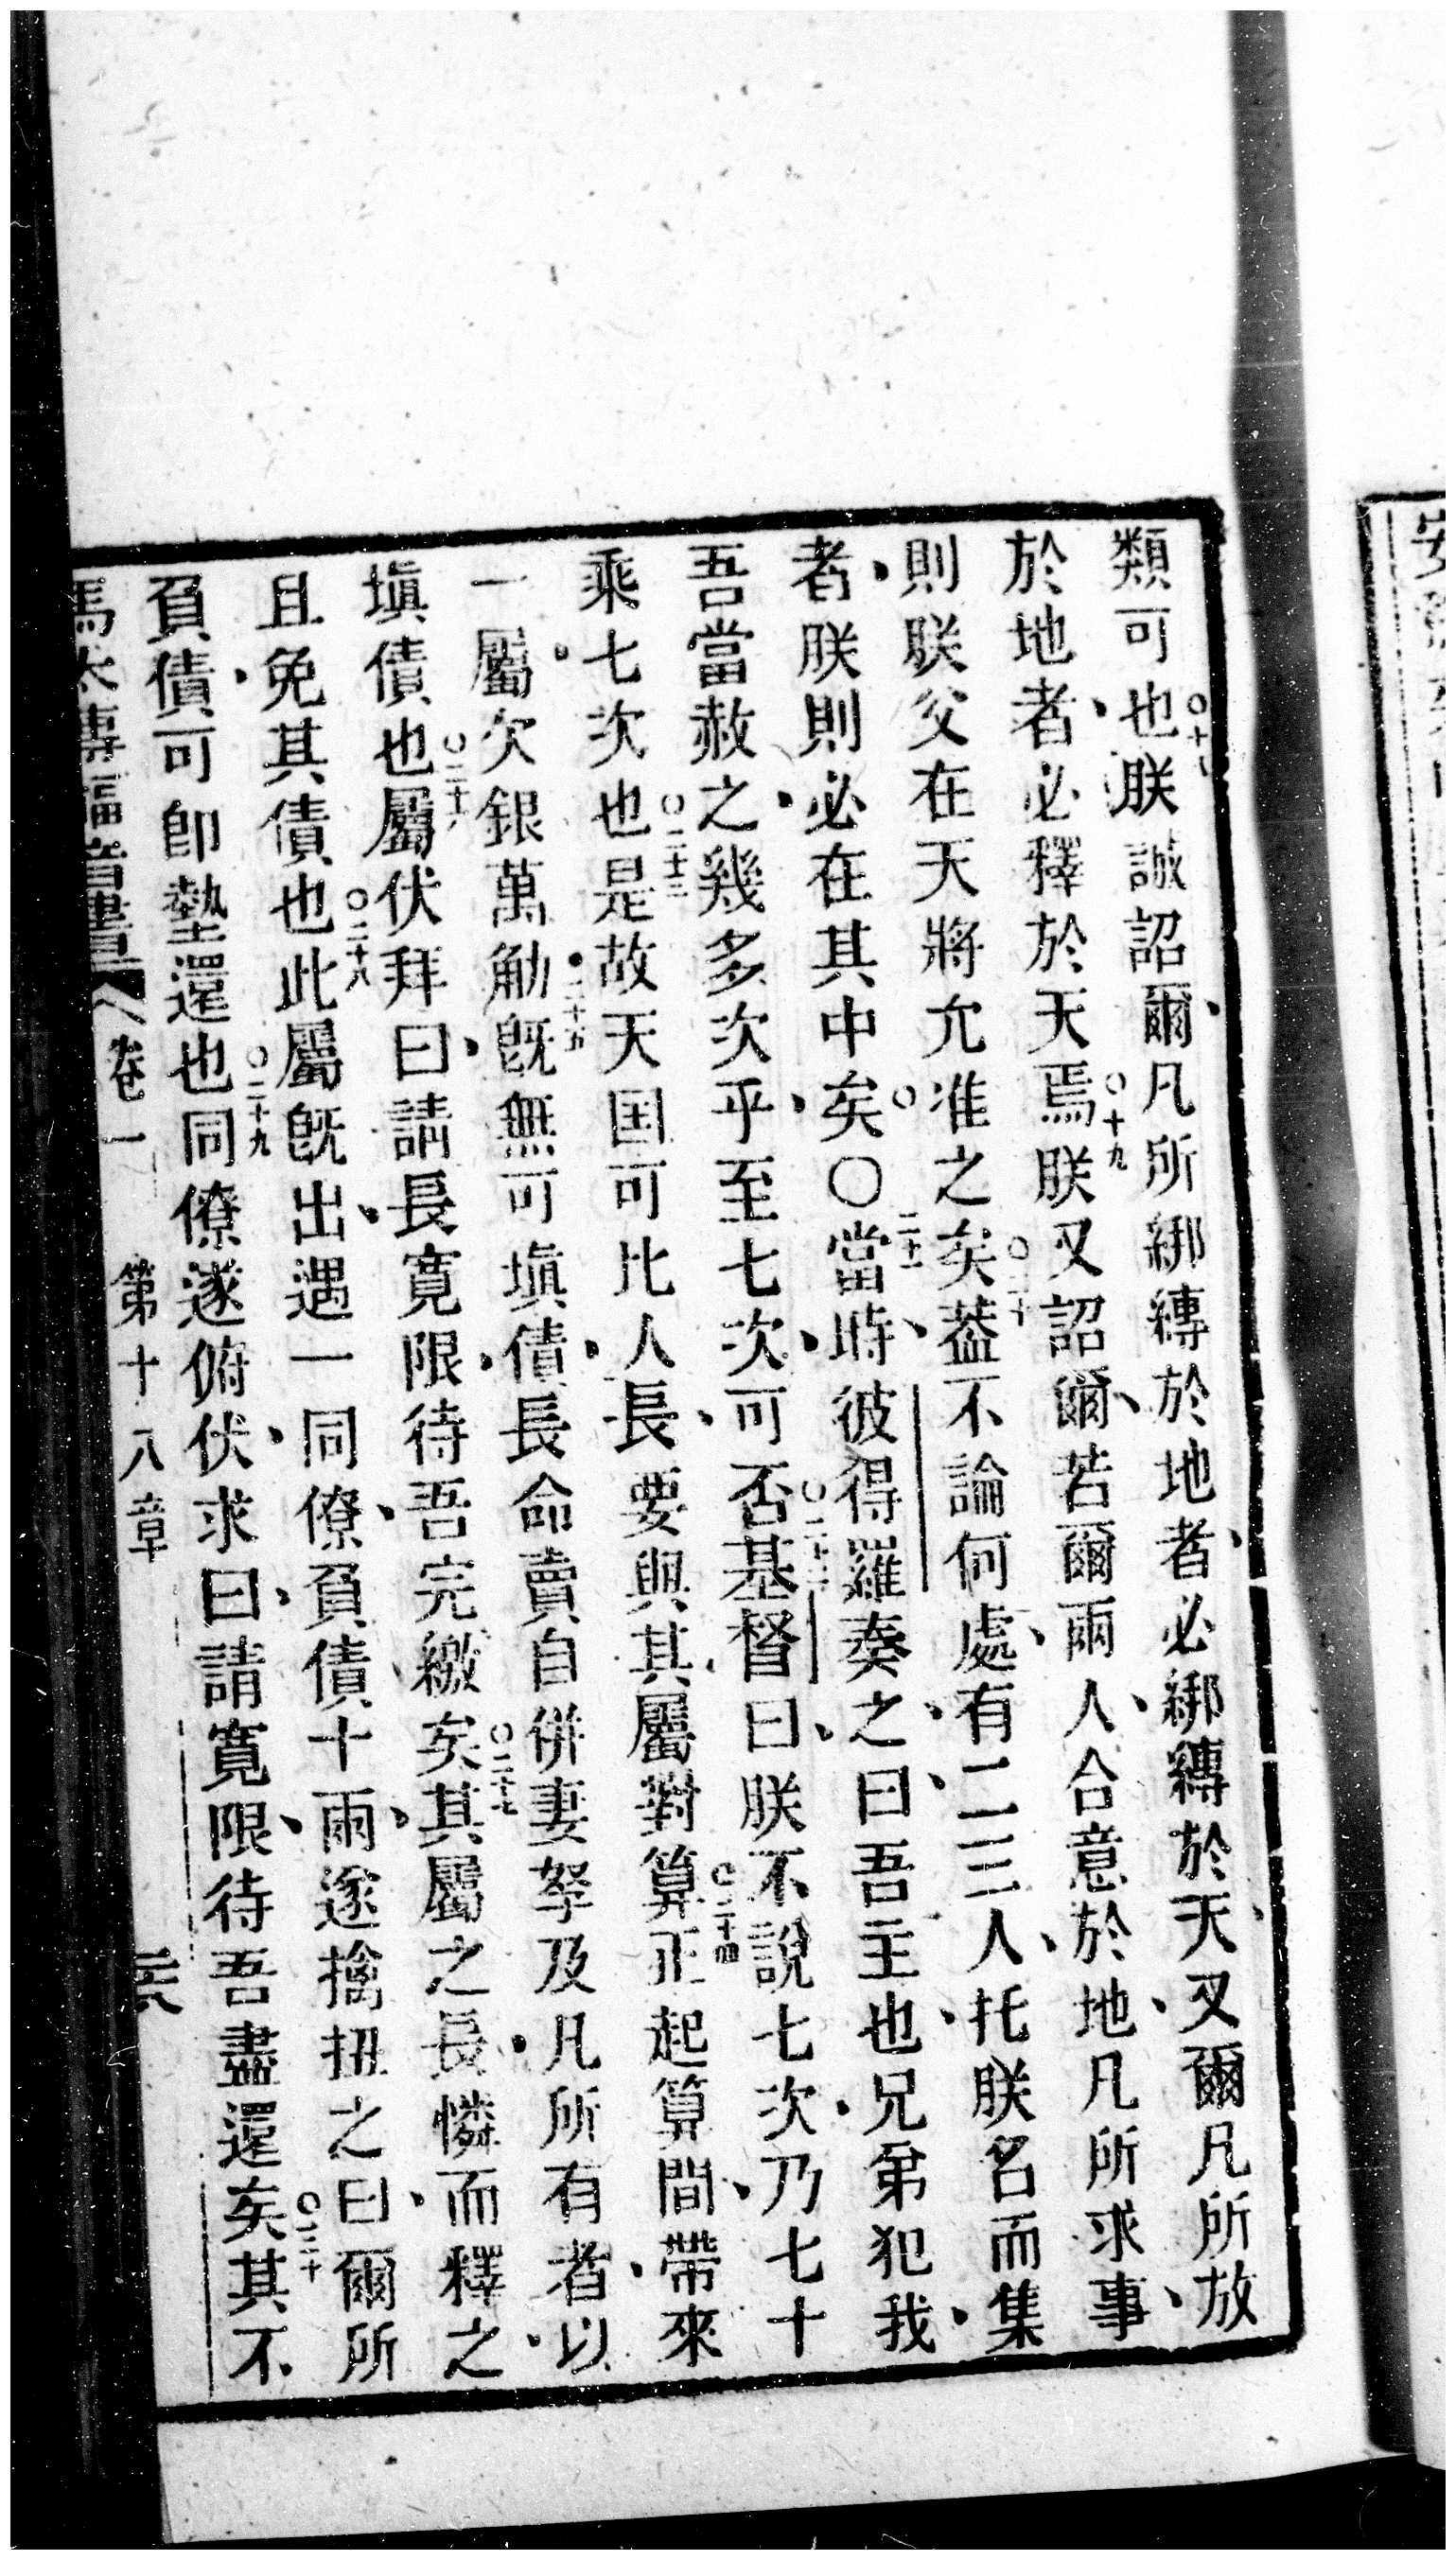 類可也○十八朕誠詔爾、凡所綁縳於地者、必綁縳於天、又爾凡所放
於地者、必釋於天焉○十九朕又詔爾、若爾兩人、合意於地、凡所求事、
則朕父在天將允准之矣○二十葢不論何處、有二三人、托朕名而集
者、朕則必在其中矣○〇二十一當時、彼得羅奏之、曰、吾主也、兄弟犯我、
吾當赦之、幾多次乎、至七次、可否○二十二基督曰、朕不說七次、乃七十
乘七次也○二十三是故天国可比人長、要與其屬對算○二十四正起算間、帶來
一屬、欠銀萬觔二十五旣無可塡債、長命賣自併妻孥及凡所有者、以
塡債也○二十六屬伏拜曰、請長寬限、待吾完繳矣○二十七其屬之長、憐而釋之、
且免其債也○二十八此屬旣出、遇一同僚、負債十兩、遂擒扭之曰、爾所
負債、可卽墊還也○二十九同僚遂俯伏、求曰、請寬限、待吾盡還矣○三十其不
馬太傳福音書 卷一 第十八章